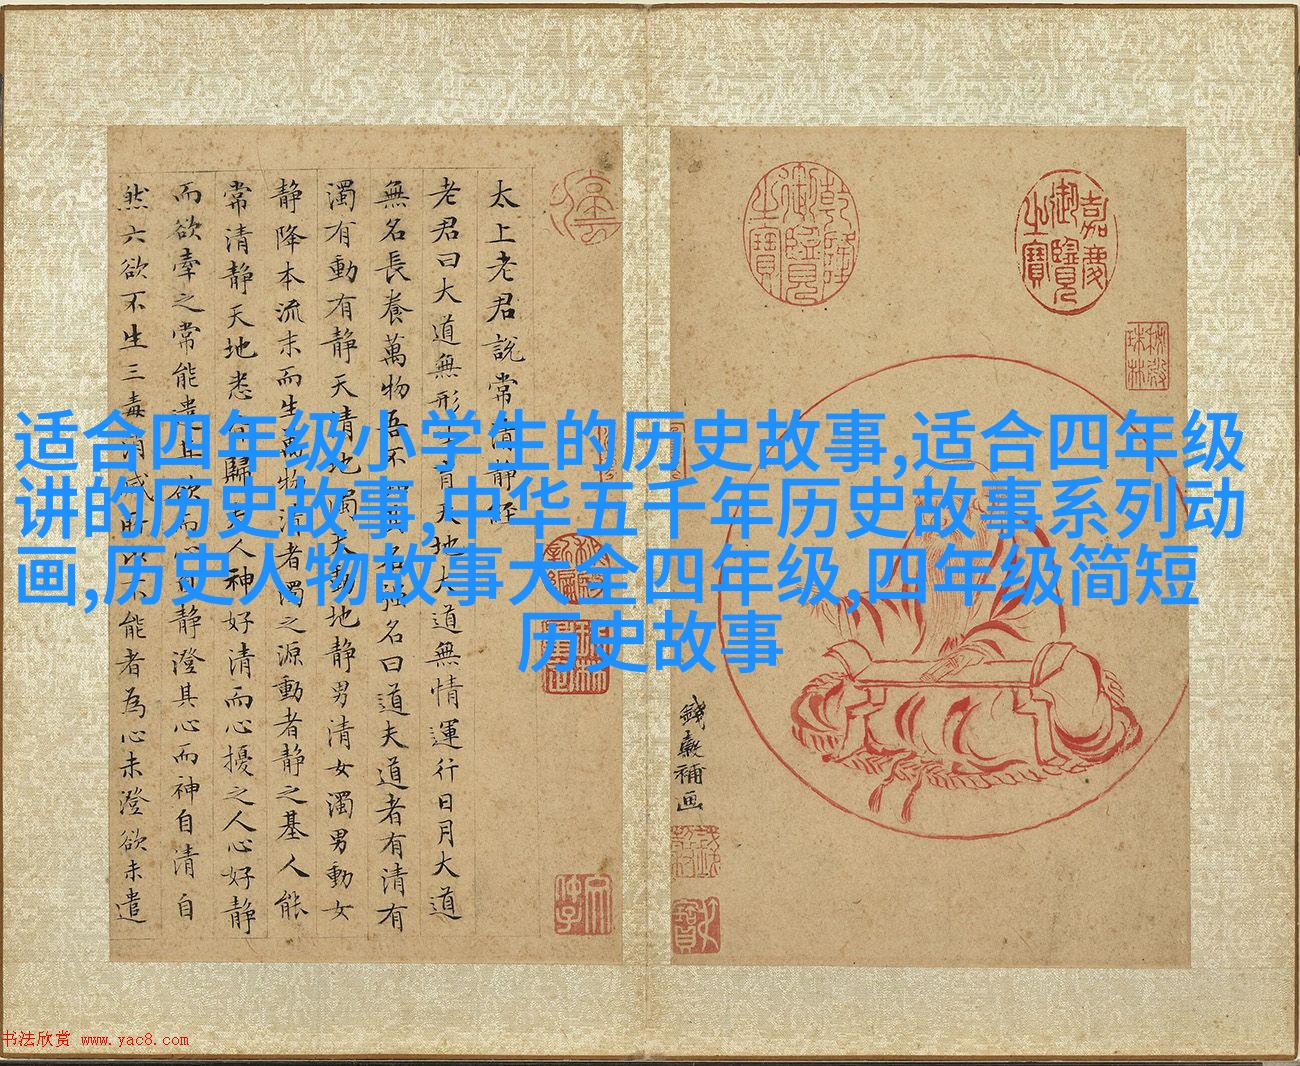 适合四年级小学生的历史故事,适合四年级
讲的历史故事,中华五千年历史故事系列动
画,历史人物故事大全四年级,四年级简短
历史故事
太上老君說常清静經
老君曰大道無形生育天地大道無情運行日月大道
無名長養萬物吾不知其名强名曰道夫道者有清有
濁有動有静天清地濁天動地静男清女濁男動女
静降本流末而生萬物清者濁之源動者静之基人能
常清静天地悉皆歸夫人神好清而心擾之人心好静
而欲牽之常能遣其欲而心自静澄其心而神自清自
然六欲不生三毒消滅所以不能者為心未澄欲未遣
乾隆御覽之寶
嘉慶御覽之寶
秘殿珠林
錢穀補画
书法欣赏 www.yac8.com